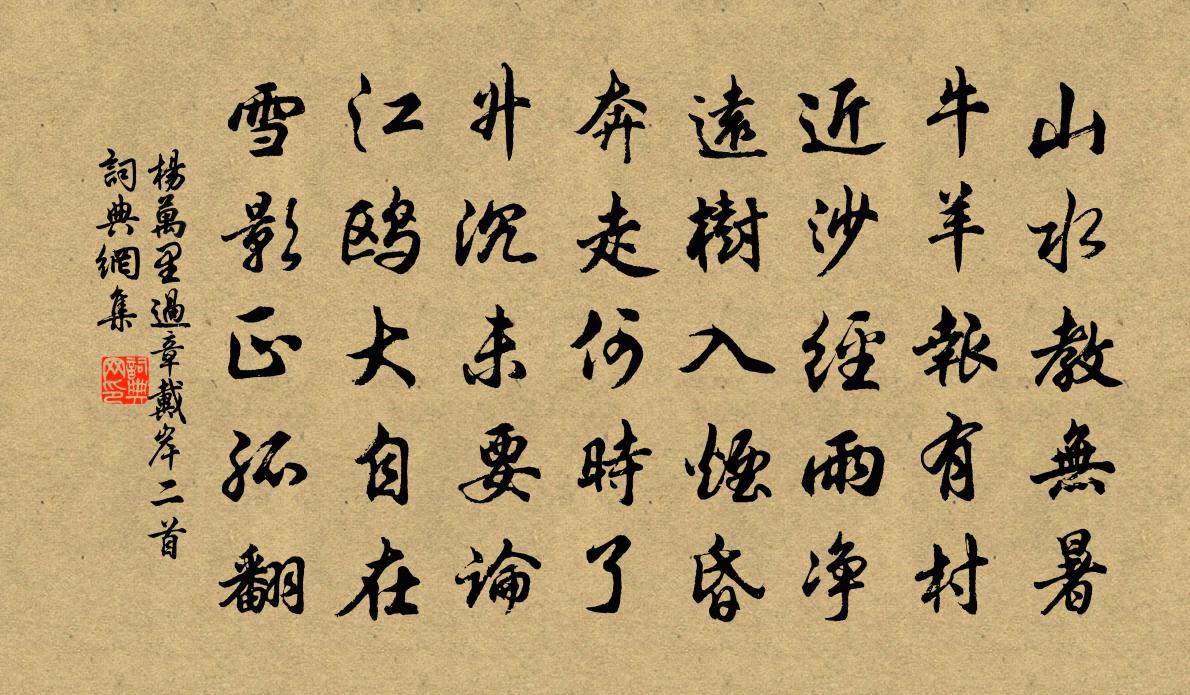 山水教無暑
牛羊報有村
近沙經雨净
遠樹入煙昏
奔走何時了
升沉未要論
江鸥大自在
雪影正孤翻
楊萬里過章戴岸二首
詞典網集
詞典
网印